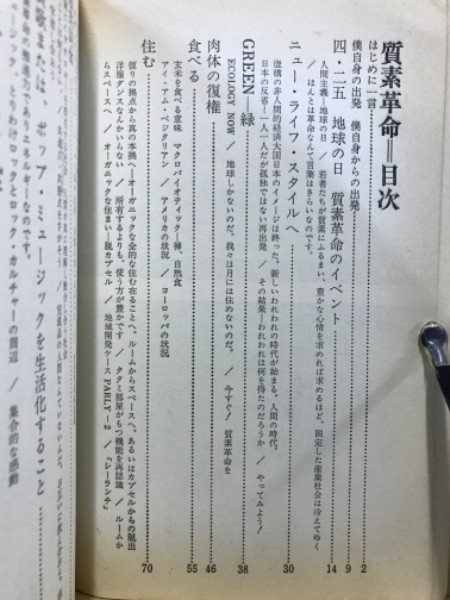 質素革命＝目次
はじめに一言……2
僕自身の出発　僕自身からの出発……9
四・二五　地球の日　質素革命のイベント……14
人間主義―地球の日　／　若者たちが質素にふるまい、豊かな心情を求めれば求めるほど、固定した産業社会は冷えてゆく
／　ほんとは革命なんて言葉はきらいなのです。
ニュー・ライフ・スタイルへ……30
虚構の非人間的経済大国日本のイメージは終った。新しいわれわれの時代が始まる。人間の時代。
日本の反省―一人一人だが孤独ではない再出発　／　その結果―われわれは何を得たのだろうか　／　やってみよう！
GREEN―緑……38
ECOLOGY NOW　／　地球しかないのだ。我々は月には住めないのだ。　／　今すぐ！　質素革命を
肉体の復権……46
食べる……55
玄米を食べる意味　マクロバイオティック―禅、自然食
アイ・アム・ベジタリアン　／　アメリカの状況　／　ヨーロッパの状況
住む……70
仮りの拠点から真の本拠へ―オーガニックな全的な住む在ることへ。ルームからスペースへ、あるいはカプセルからの脱出
洋服ダンスなんかいらない　／　所有するよりも、使う方が豊かです　／　タタミ部屋がもつ機能を再認識　／　ルームか
らスペースへ　／　オーガニックな住まい―脱カプセル　／　地域開発ケース PARLY―2　／　「シーランチ」
ポップ・ミュージックを生活化すること
ロック・カルチャーの周辺　／　集合的な感動